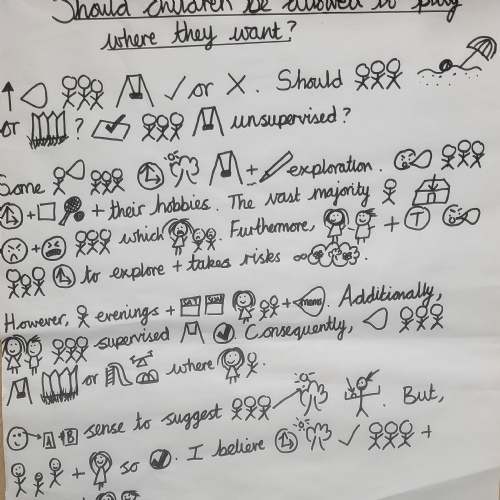 Should children be allowed to play
where they want?
✓ or X. Should
or ? unsupervised?
Some + exploration.
+ + their hobbies. The vast majority
+ which . Furthermore, + T
to explore + takes risks
However, evenings + SAT SUN + mams. Additionally,
supervised . Consequently,
or where .
A B sense to suggest . But,
+ so . I believe ✓ +